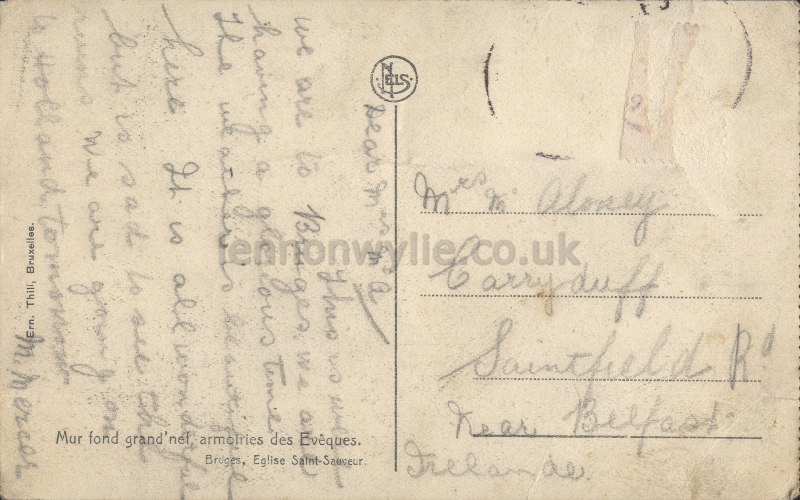 Dear Mrs McA
This is where
we are to Bruges. we are
having a glorious time
The weather is beautiful
here. It is all wonderful
but is sad to see the
ruins we are going on
to Holland tomorrow
M. Mercer
NELS
Mrs Mc
Carryduff
Saintfield Rd
Near Belfast
Irelande.
Ern. Thill, Bruxelles.
Mur fond grand'nef, armoiries des Evêques.
Bruges, Eglise Saint-Sauveur.
lennonwylie.co.uk